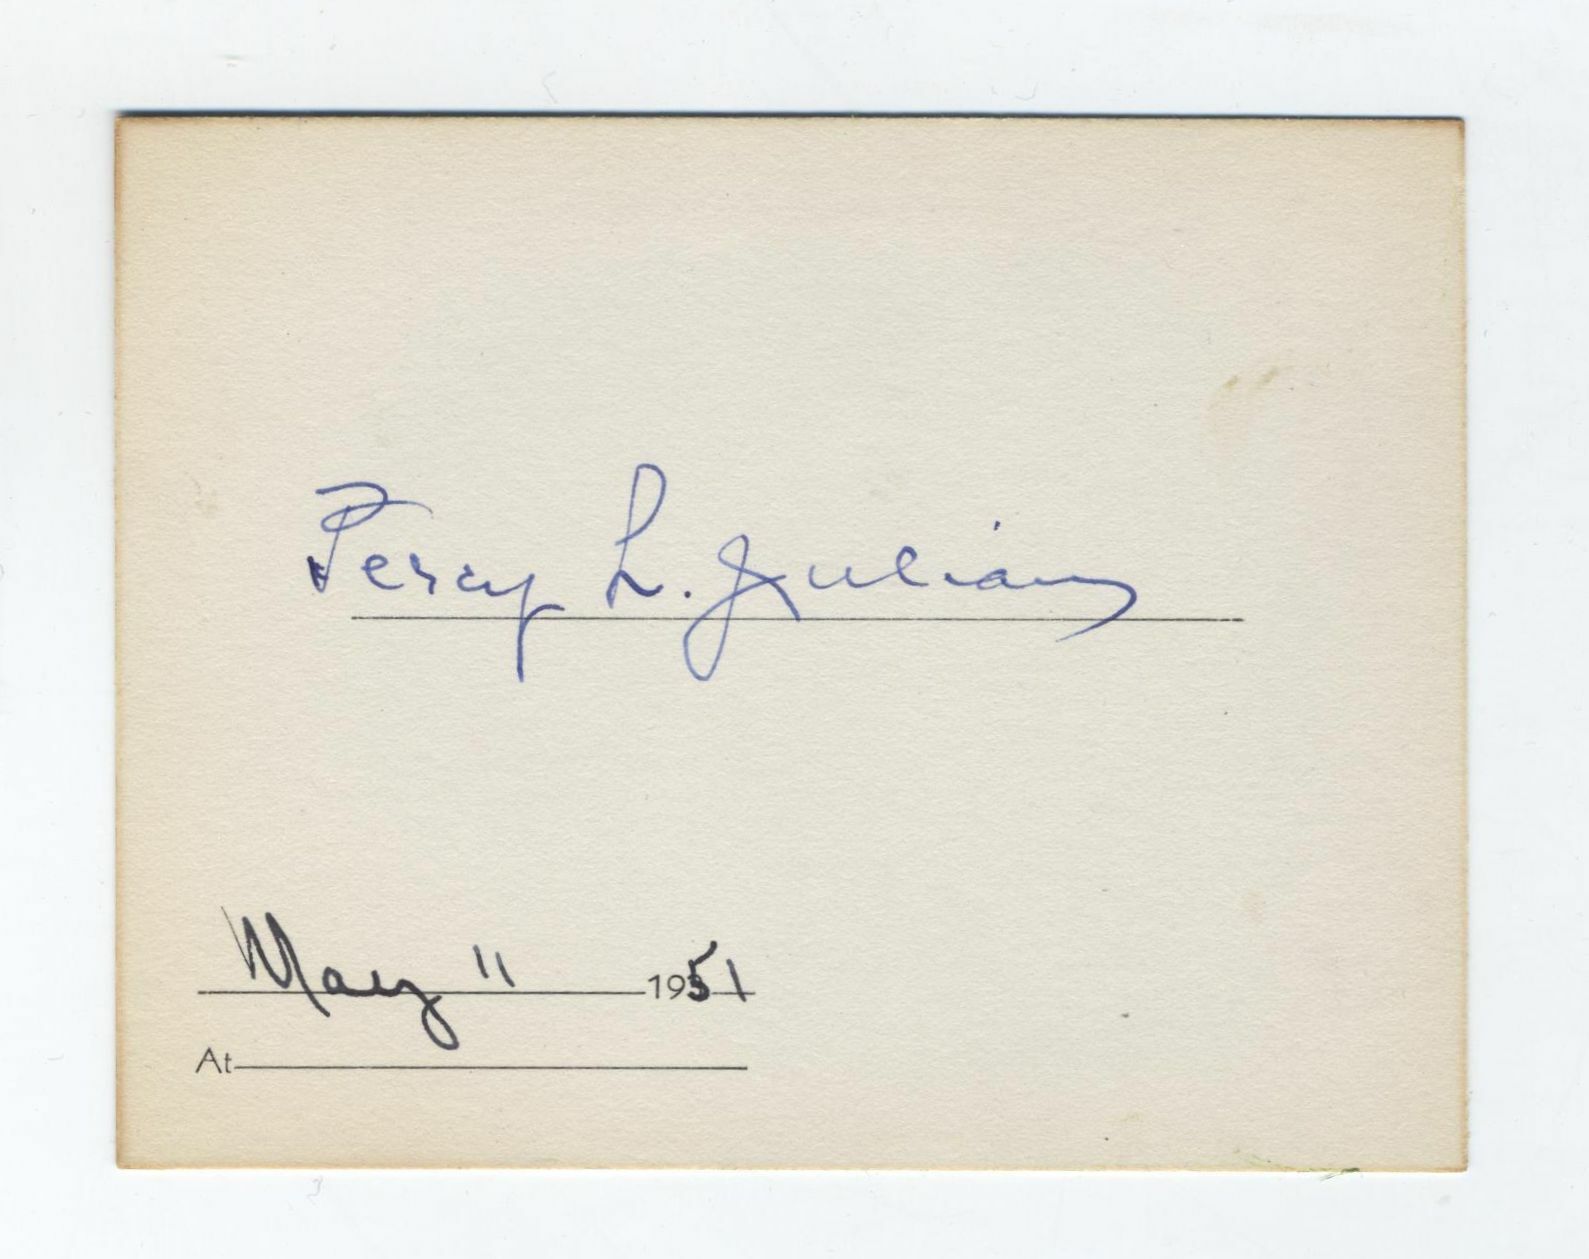 Percy L. Julian
May 11 1951
At